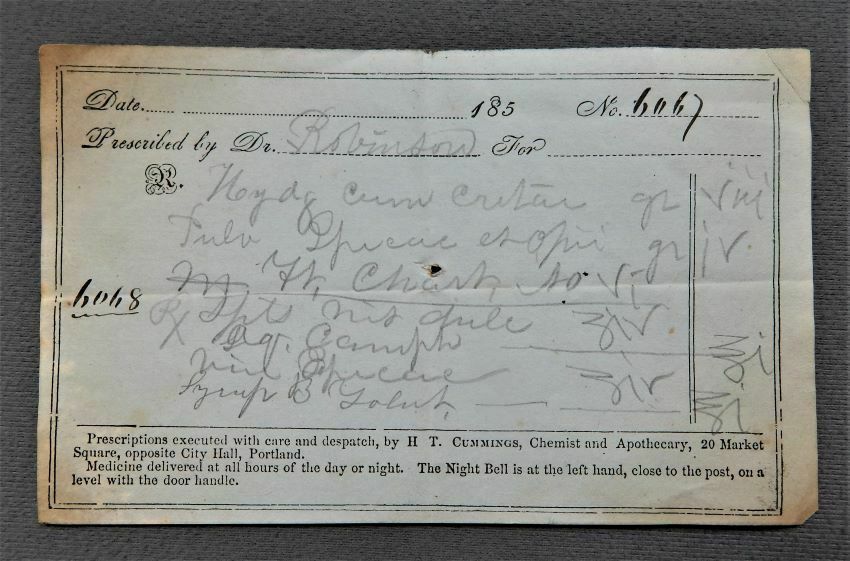 Date. 185 No. 6067
Prescribed by Dr. Robinson For
R.
Hydg cum cretae gr viii
Pulv Ipecac et Opii gr iv
M Ft, Chart, No VI
6068
Rx Spts nit dulc ʒiv
Aq. Camph ℥i
Vin Ipecac ʒiv
Syrup B Tolut, ℥i
Prescriptions executed with care and despatch, by H T. CUMMINGS, Chemist and Apothecary, 20 Market
Square, opposite City Hall, Portland.
Medicine delivered at all hours of the day or night. The Night Bell is at the left hand, close to the post, on a
level with the door handle.